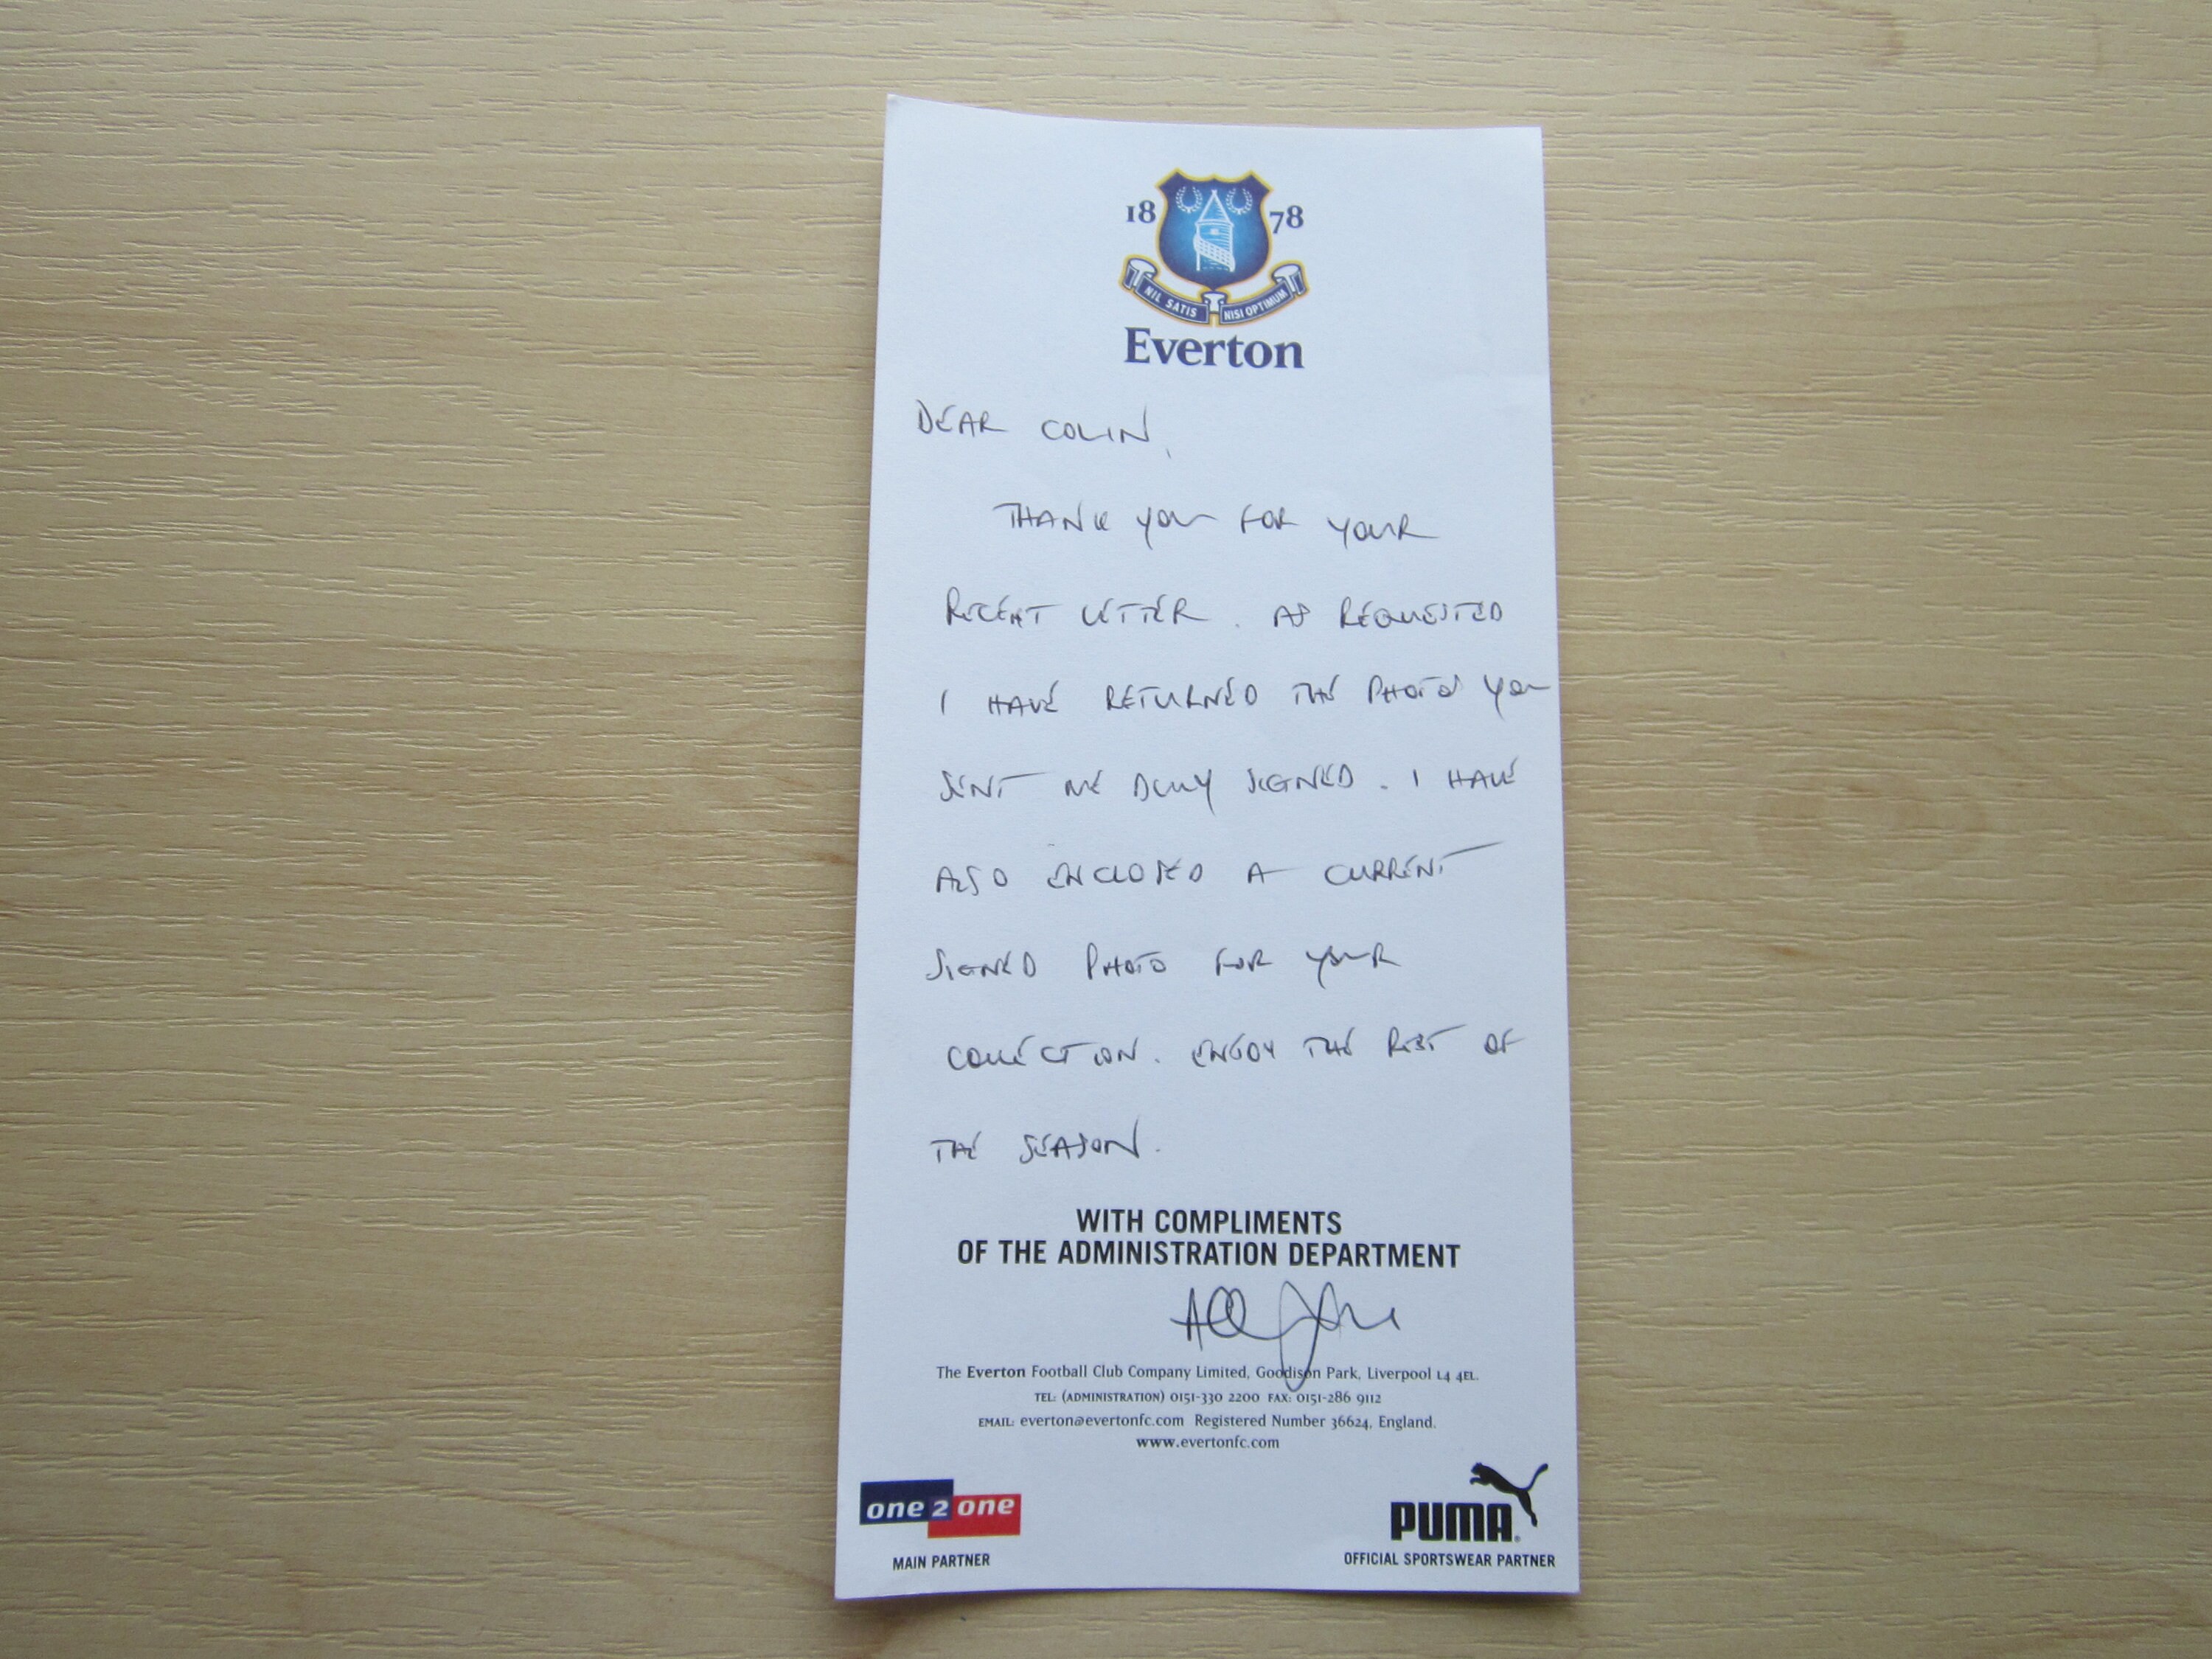 18 78
NIL SATIS NISI OPTIMUM
Everton
DEAR COLIN,
THANK YOU FOR YOUR
RECENT LETTER. AS REQUESTED
I HAVE RETURNED THE PHOTOS YOU
SENT ME DULY SIGNED. I HAVE
ALSO ENCLOSED A CURRENT
SIGNED PHOTO FOR YOUR
COLLECTION. ENJOY THE REST OF
THE SEASON.
WITH COMPLIMENTS
OF THE ADMINISTRATION DEPARTMENT
The Everton Football Club Company Limited, Goodison Park, Liverpool L4 4EL.
TEL: (ADMINISTRATION) 0151-330 2200 FAX: 0151-286 9112
EMAIL: everton@evertonfc.com Registered Number 36624, England.
www.evertonfc.com
one 2 one
MAIN PARTNER
PUMA
OFFICIAL SPORTSWEAR PARTNER